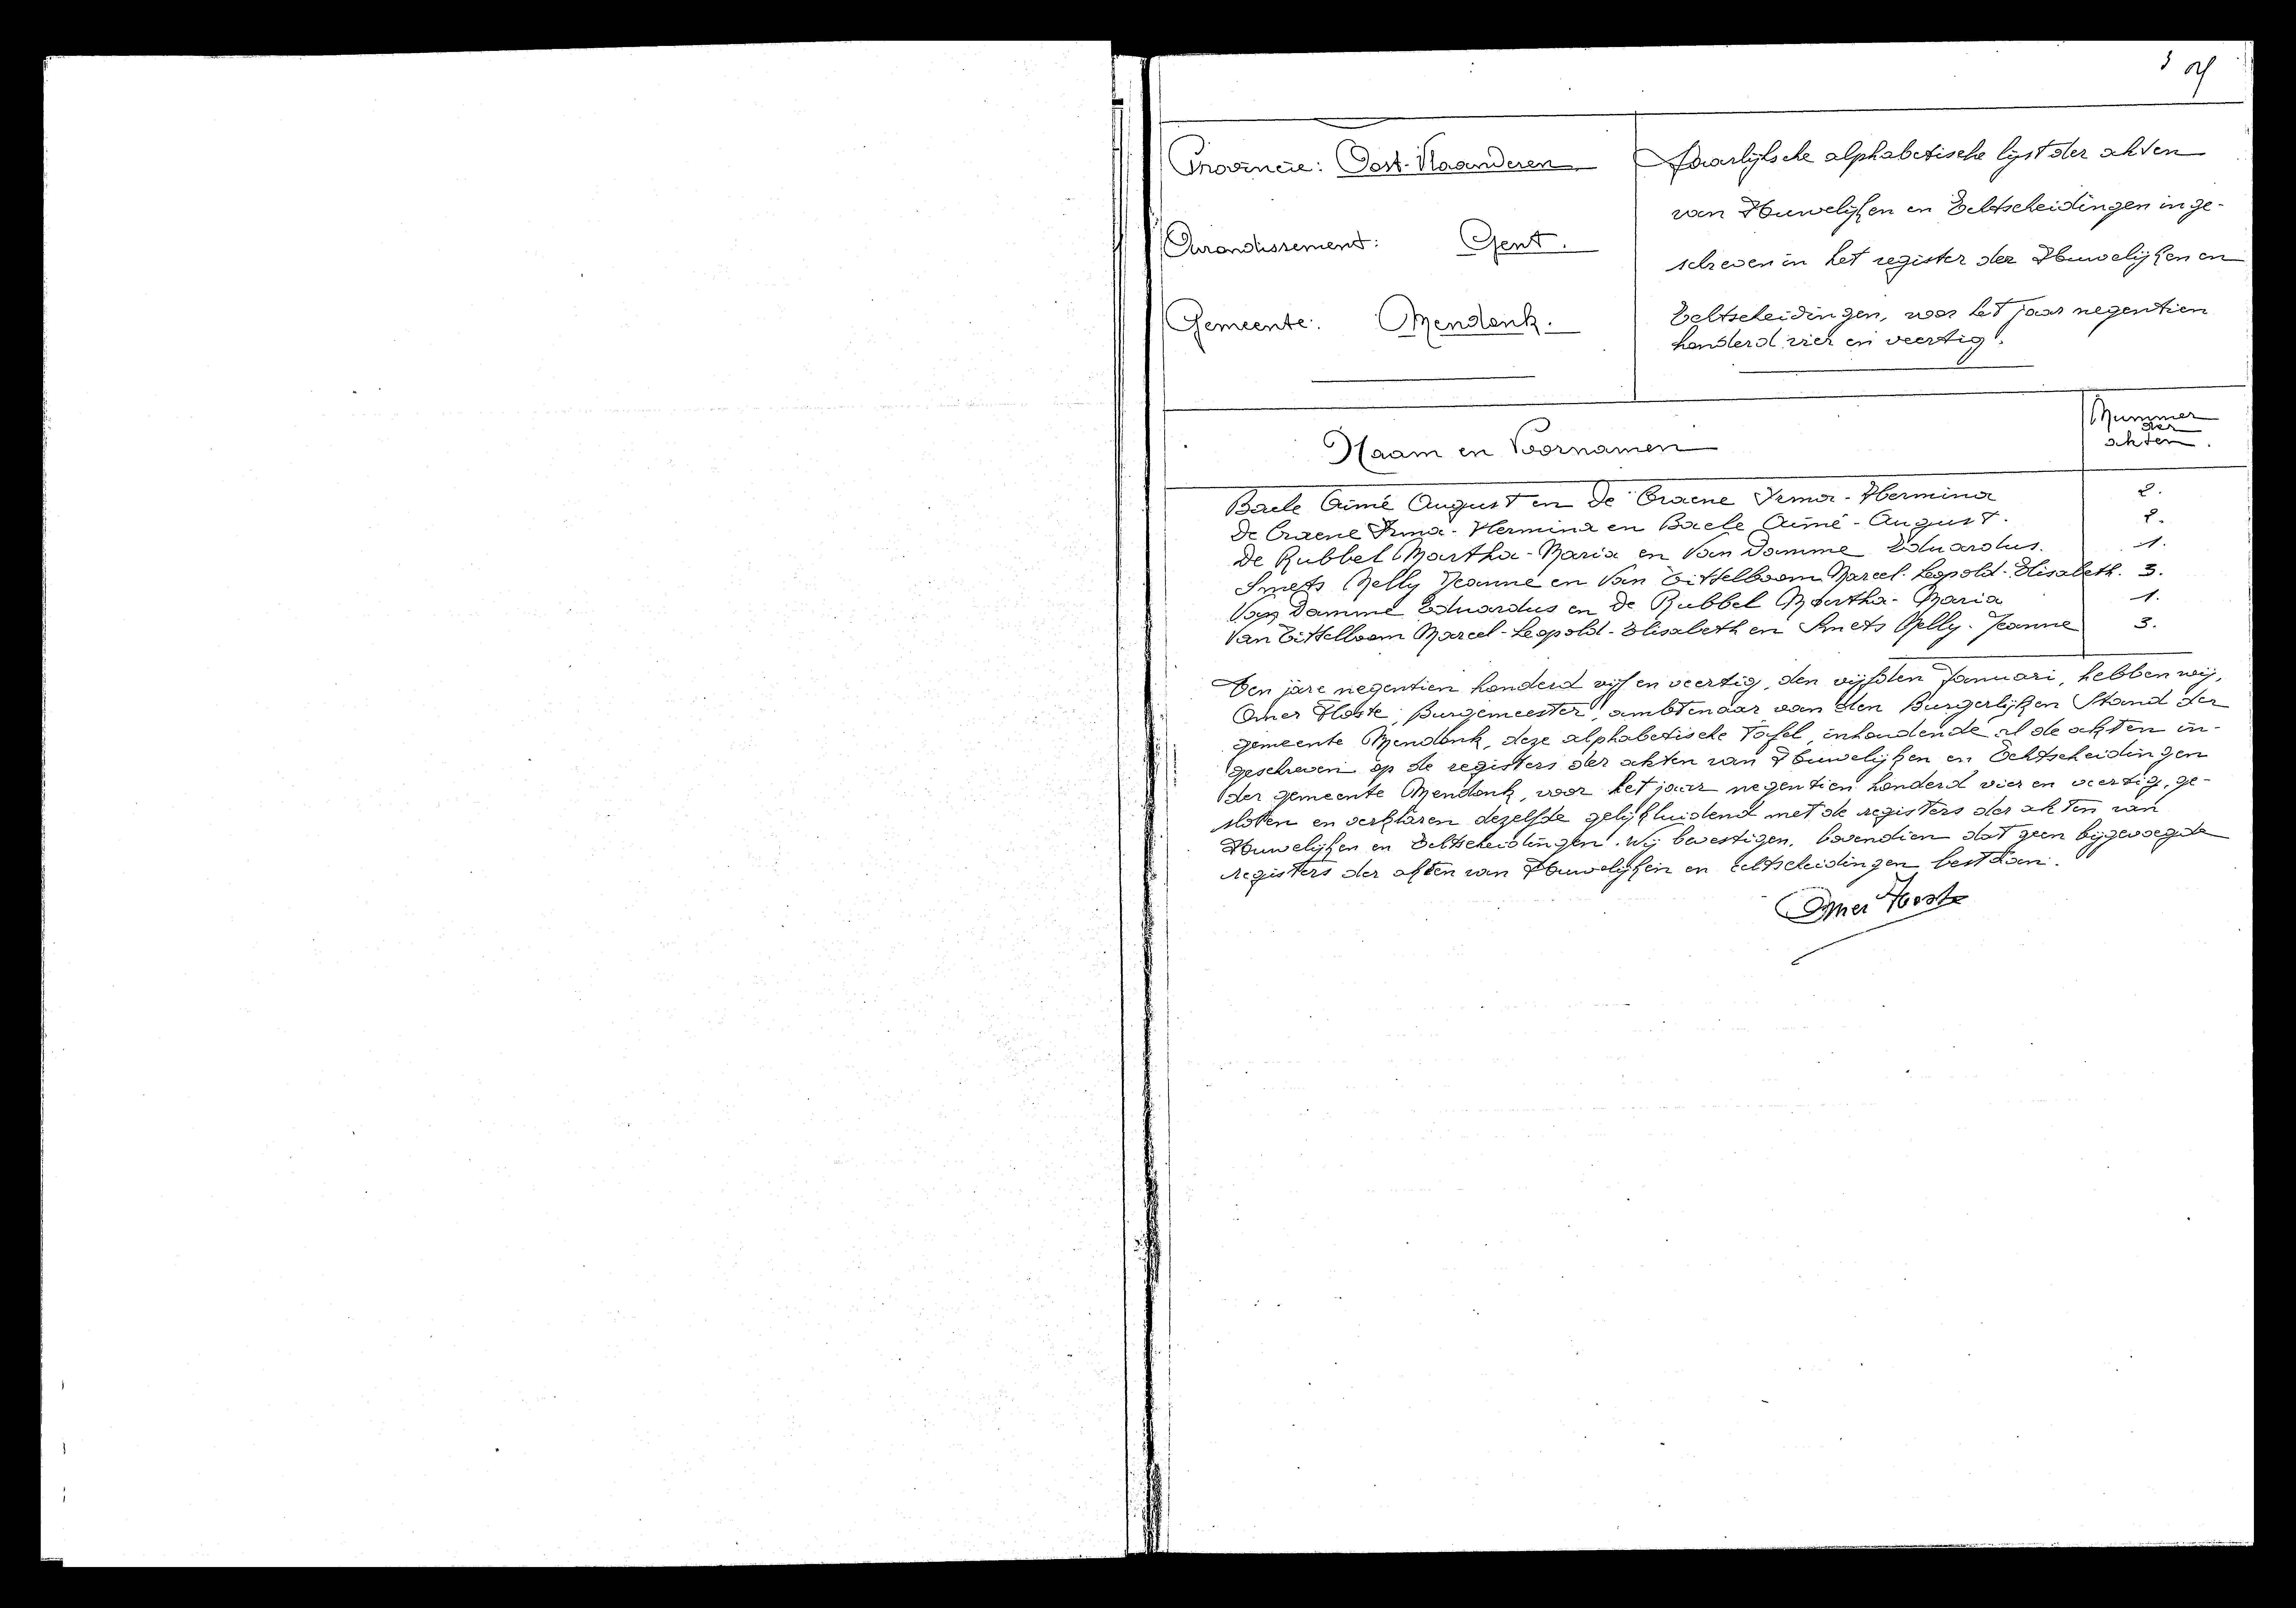 3
Provincie: Oost-Vlaanderen
Arrondissement: Gent.
Gemeente: Mendonk.
Jaarlijksche alphabetische lijst der akten
van Huwelijken en Echtscheidingen inge-
schreven in het register der Huwelijken en
Echtscheidingen, voor het jaar negentien
honderd vier en veertig.
Naam en Voornamen
Nummer
der
akten.
Baele Aimé August en De Craene Irma-Hermina 2.
De Craene Irma-Hermina en Baele Aimé-August. 2.
De Rubbel Martha-Maria en Van Damme Eduardus. 1.
Smets Nelly Jeanne en Van Eittelboom Marcel-Leopold-Elisabeth. 3.
Van Damme Eduardus en De Rubbel Martha-Maria 1.
Van Eittelboom Marcel-Leopold-Elisabeth en Smets Nelly-Jeanne 3.
Ten jare negentien honderd vijf en veertig, den vijfden Januari, hebben wij,
Omer Hoste, Burgemeester, ambtenaar van den Burgerlijken Stand der
gemeente Mendonk, deze alphabetische Tafel, inhoudende al de akten in-
geschreven op de registers der akten van Huwelijken en Echtscheidingen
der gemeente Mendonk, voor het jaar negentien honderd vier en veertig, ge-
sloten en verklaren dezelfde gelijkluidend met de registers der akten van
Huwelijken en Echtscheidingen. Wij bevestigen, bovendien dat geen bijgevoegde
registers der akten van Huwelijken en echtscheidingen bestaan.
Omer Hoste